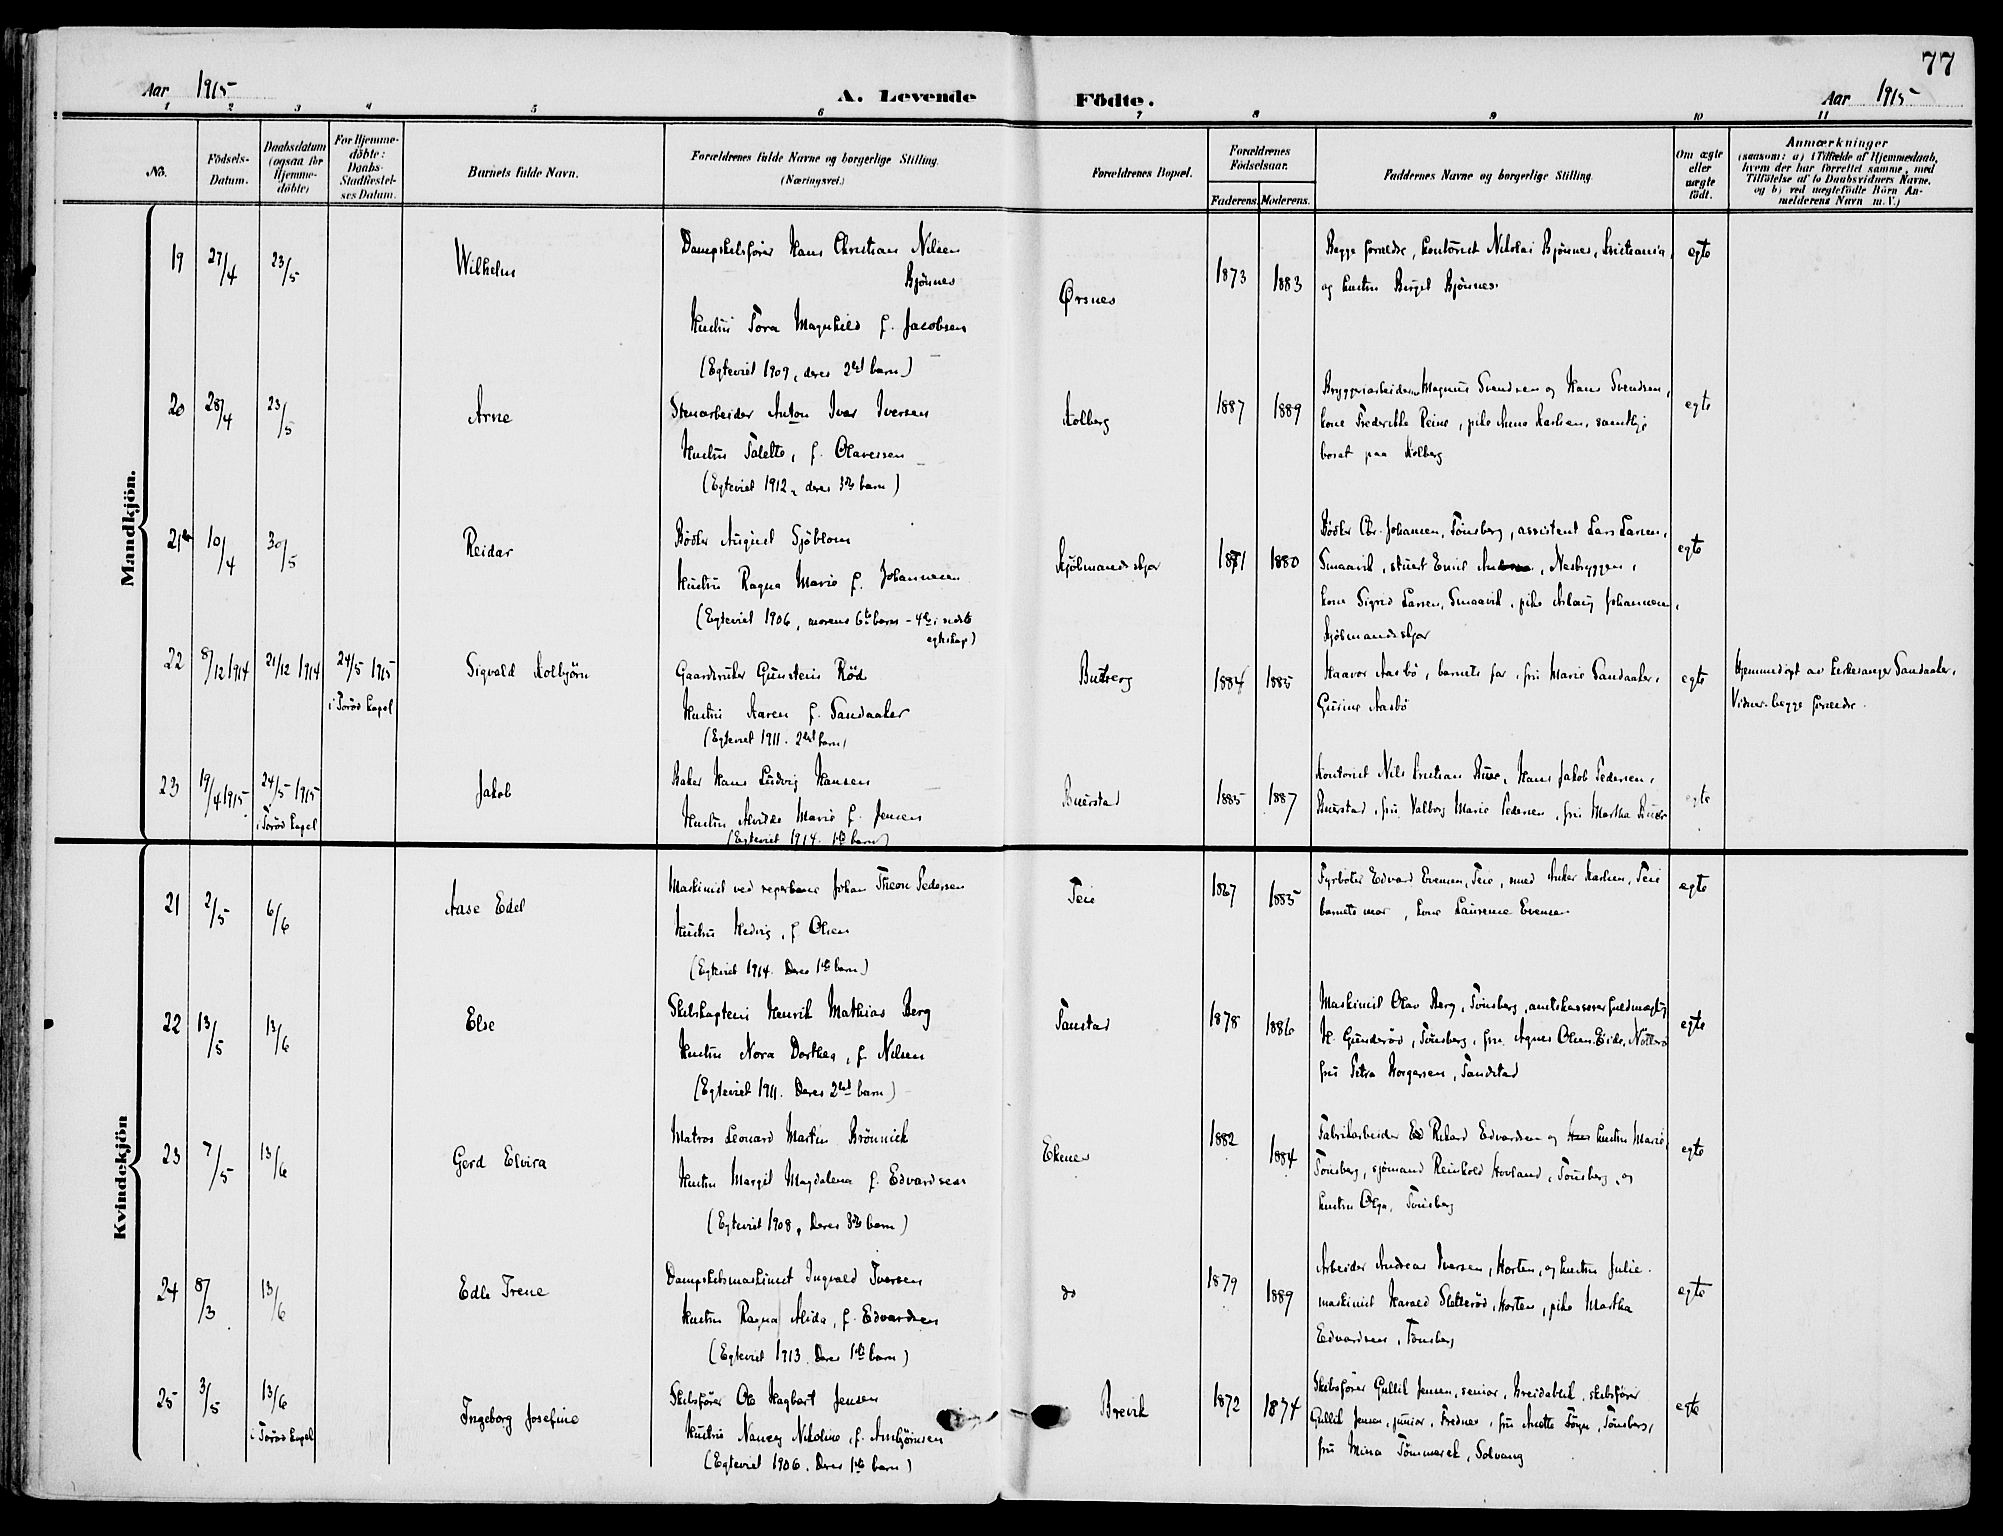 77
Aar 1915
A. Levende Födte.
Aar 1915
1 2 3 4 5 6 7 8 9 10 11
No.
Födsels-
Datum.
Daabsdatum
(ogsaa for
Hjemme-
döbte)
For Hjemme-
döbte:
Daabs-
Stadfæstel-
ses Datum.
Barnets fulde Navn.
Forældrenes fulde Navne og borgerlige Stilling.
(Næringsvei.)
Forældrenes Bopæl.
Forældrenes
Födselsaar.
Faderens. Moderens.
Faddernes Navne og borgerlige Stilling.
Om ægte
eller
uægte
födt.
Anmærkninger
(saasom: a) i Tilfælde af Hjemmedaab,
hvem der har forrettet samme, med
Tilföielse af to Daabsvidners Navne,
og b) ved uægtefödte Börn An-
melderens Navn m. V.)
Mandkjön.
19 27/4 23/5 Wilhelm
Dampskibsfører Hans Christian Nilsen
Bjønnes
Hustru Tora Magnhild f. Jacobsen
(Egteviet 1909, deres 2det barn)
Ørsnes 1873 1883
Begge foreldre, kontorist Nikolai Bjønnes, Kristiania,
og hustru Birgit Bjønnes.
egte
20 28/4 23/5 Arne
Stenarbeider Anton Ivar Iversen
Hustru Talette, f. Olavesen
(Egteviet 1912, deres 3die barn)
Kolberg 1887 1889
Bryggeriarbeiderne Magnus Svendsen og Hans Svendsen,
kone Frederikke Peine, pike Anna Karlsen, samtlige
bosat paa Kolberg
egte
21 10/4 30/5 Reidar
Bødker August Sjöblom
Hustru Ragna Marie f. Johannesen
(Egteviet 1906, morens 6te barn - 4de i sidste
egteskap)
Kjøbmandskjær 1871 1880
Bødker Chr. Johansen, Tønsberg, assistent Lars Larsen,
Smaavik, stuert Emil, Nesbryggen,
kone Sigrid Larsen, Smaavik, pike Aslaug Johannesen,
Kjøbmandskjær
egte
22 8/12 1914 21/12 1914 24/5 1915
i Torød kapel
Sigvald Kolbjørn
Gaardbruker Gunstein Rød
Hustru Karen f. Sandaaker
(Egteviet 1911. 2det barn)
Buberg 1884 1885
Haavor Aasbø, barnets far, fru Marie Sandaaker,
Gurine Aasbø
egte
Hjemmedøpt av kirkesanger Sandaaker.
Vidner: begge foreldre.
23 19/4 1915 24/5 1915
i Torød kapel
Jakob
Baker Hans Ludvig Hansen
Hustru Alvilde Marie f. Jensen
(Egteviet 1914. 1ste barn)
Buerstad 1885 1887
Kontorist Nils Kristian Buer, Hans Jakob Pedersen,
Buerstad, fru Valborg Marie Pedersen, fru Martha Buer
egte
Kvindekjön
21 2/5 6/6 Aase Edel
Maskinist ved reperbane Johan Theon Pedersen
Hustru Hedvig, f. Olsen
(Egteviet 1914. Deres 1ste barn)
Teie 1887 1885
Fyrbøter Edvard Evensen, Teie, smed Anker Karlsen, Teie
barnets mor, kone Laurense Evensen
egte
22 13/5 13/6 Else
Skibskaptein Henrik Mathias Berg
Hustru Nora Dorthea, f. Nilsen
(Egteviet 1911. Deres 2det barn)
Tanstad 1878 1886
Maskinist Olav Berg, Tønsberg, amtskasserer fuldmægtig
H. Gunderød, Tønsberg, fru Agnes Olsen Eide, Nøtterø
fru Petra Horgersen, Sandstad
egte
23 7/5 13/6 Gerd Elvira
Matros Leonard Martin Brönnick
Hustru Margit Magdalena f. Edvardsen
(Egteviet 1908, Deres 3die barn)
Ekenes 1882 1884
Fabrikarbeider Rikard Edvardsen og hustru Marie,
Tønsberg, sjømand Reinhold Hovland, Tønsberg, og
hustru Olga, Tønsberg
egte
24 8/3 13/6 Edle Irene
Dampskibsmaskinist Ingvald Iversen
Hustru Ragna Alida, f. Edvardsen
(Egteviet 1913. Deres 1ste barn)
do 1879 1889
Arbeider Andreas Iversen, Horten, og hustru Julie.
maskinist Harald Sletterød, Horten, pike Martha
Edvardsen, Tønsberg
egte
25 3/5 13/6
i Torød kapel
Ingeborg Josefine
Skibsfører Ole Hagbart Jensen
Hustru Nancy Nikoline, f. Ambjørnsen
(Egteviet 1906. Deres 1ste barn)
Brevik 1872 1874
Skibsfører Gullik Jensen, senior, Breidablik, skibsfører
Gullik Jensen, junior, Frednes, fru Anette Førya, Tønsberg,
fru Mina Tømmerek, Solvang
egte